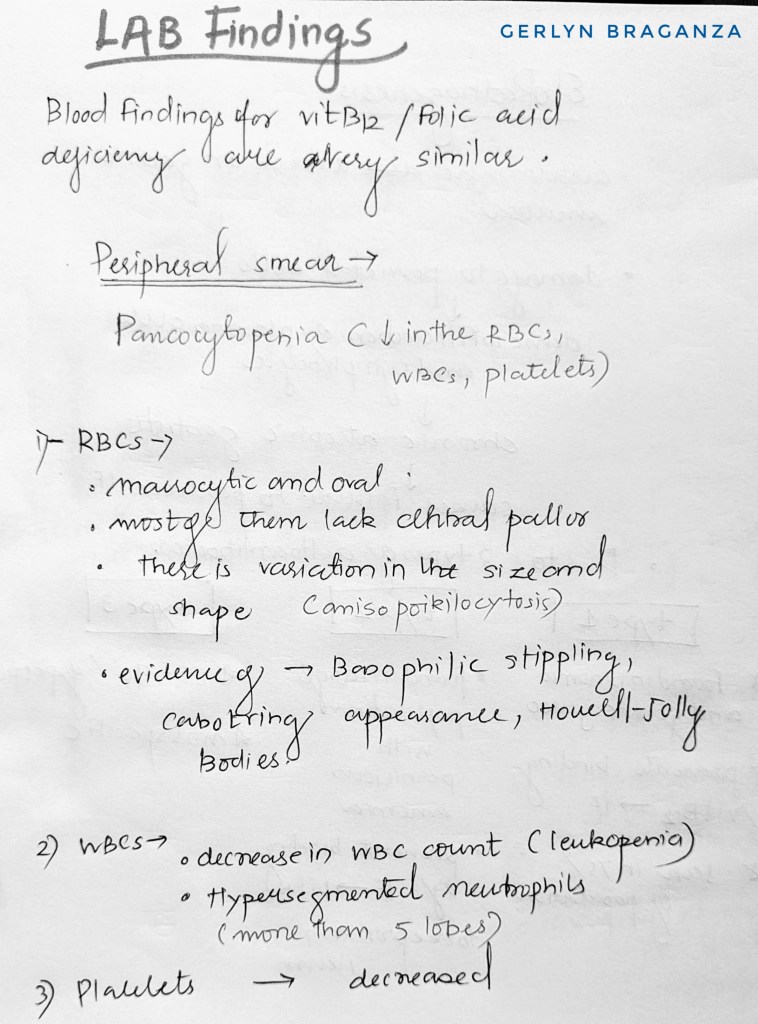 LAB Findings
GERLYN BRAGANZA
Blood findings for vitB12 / Folic acid
deficiency are very similar.
Peripheral smear →
Pancocytopenia (↓ in the RBCs,
WBCs, platelets)
1)- RBCs →
• macrocytic and oval
• most of them lack central pallor
• there is variation in the size and
shape (aniso poikilocytosis)
• evidence of → Basophilic stippling,
cabot ring appearance, Howell-Jolly
Bodies.
2) WBCs → • decrease in WBC count (leukopenia)
• Hypersegmented neutrophils
(more than 5 lobes)
3) Platelets → decreased